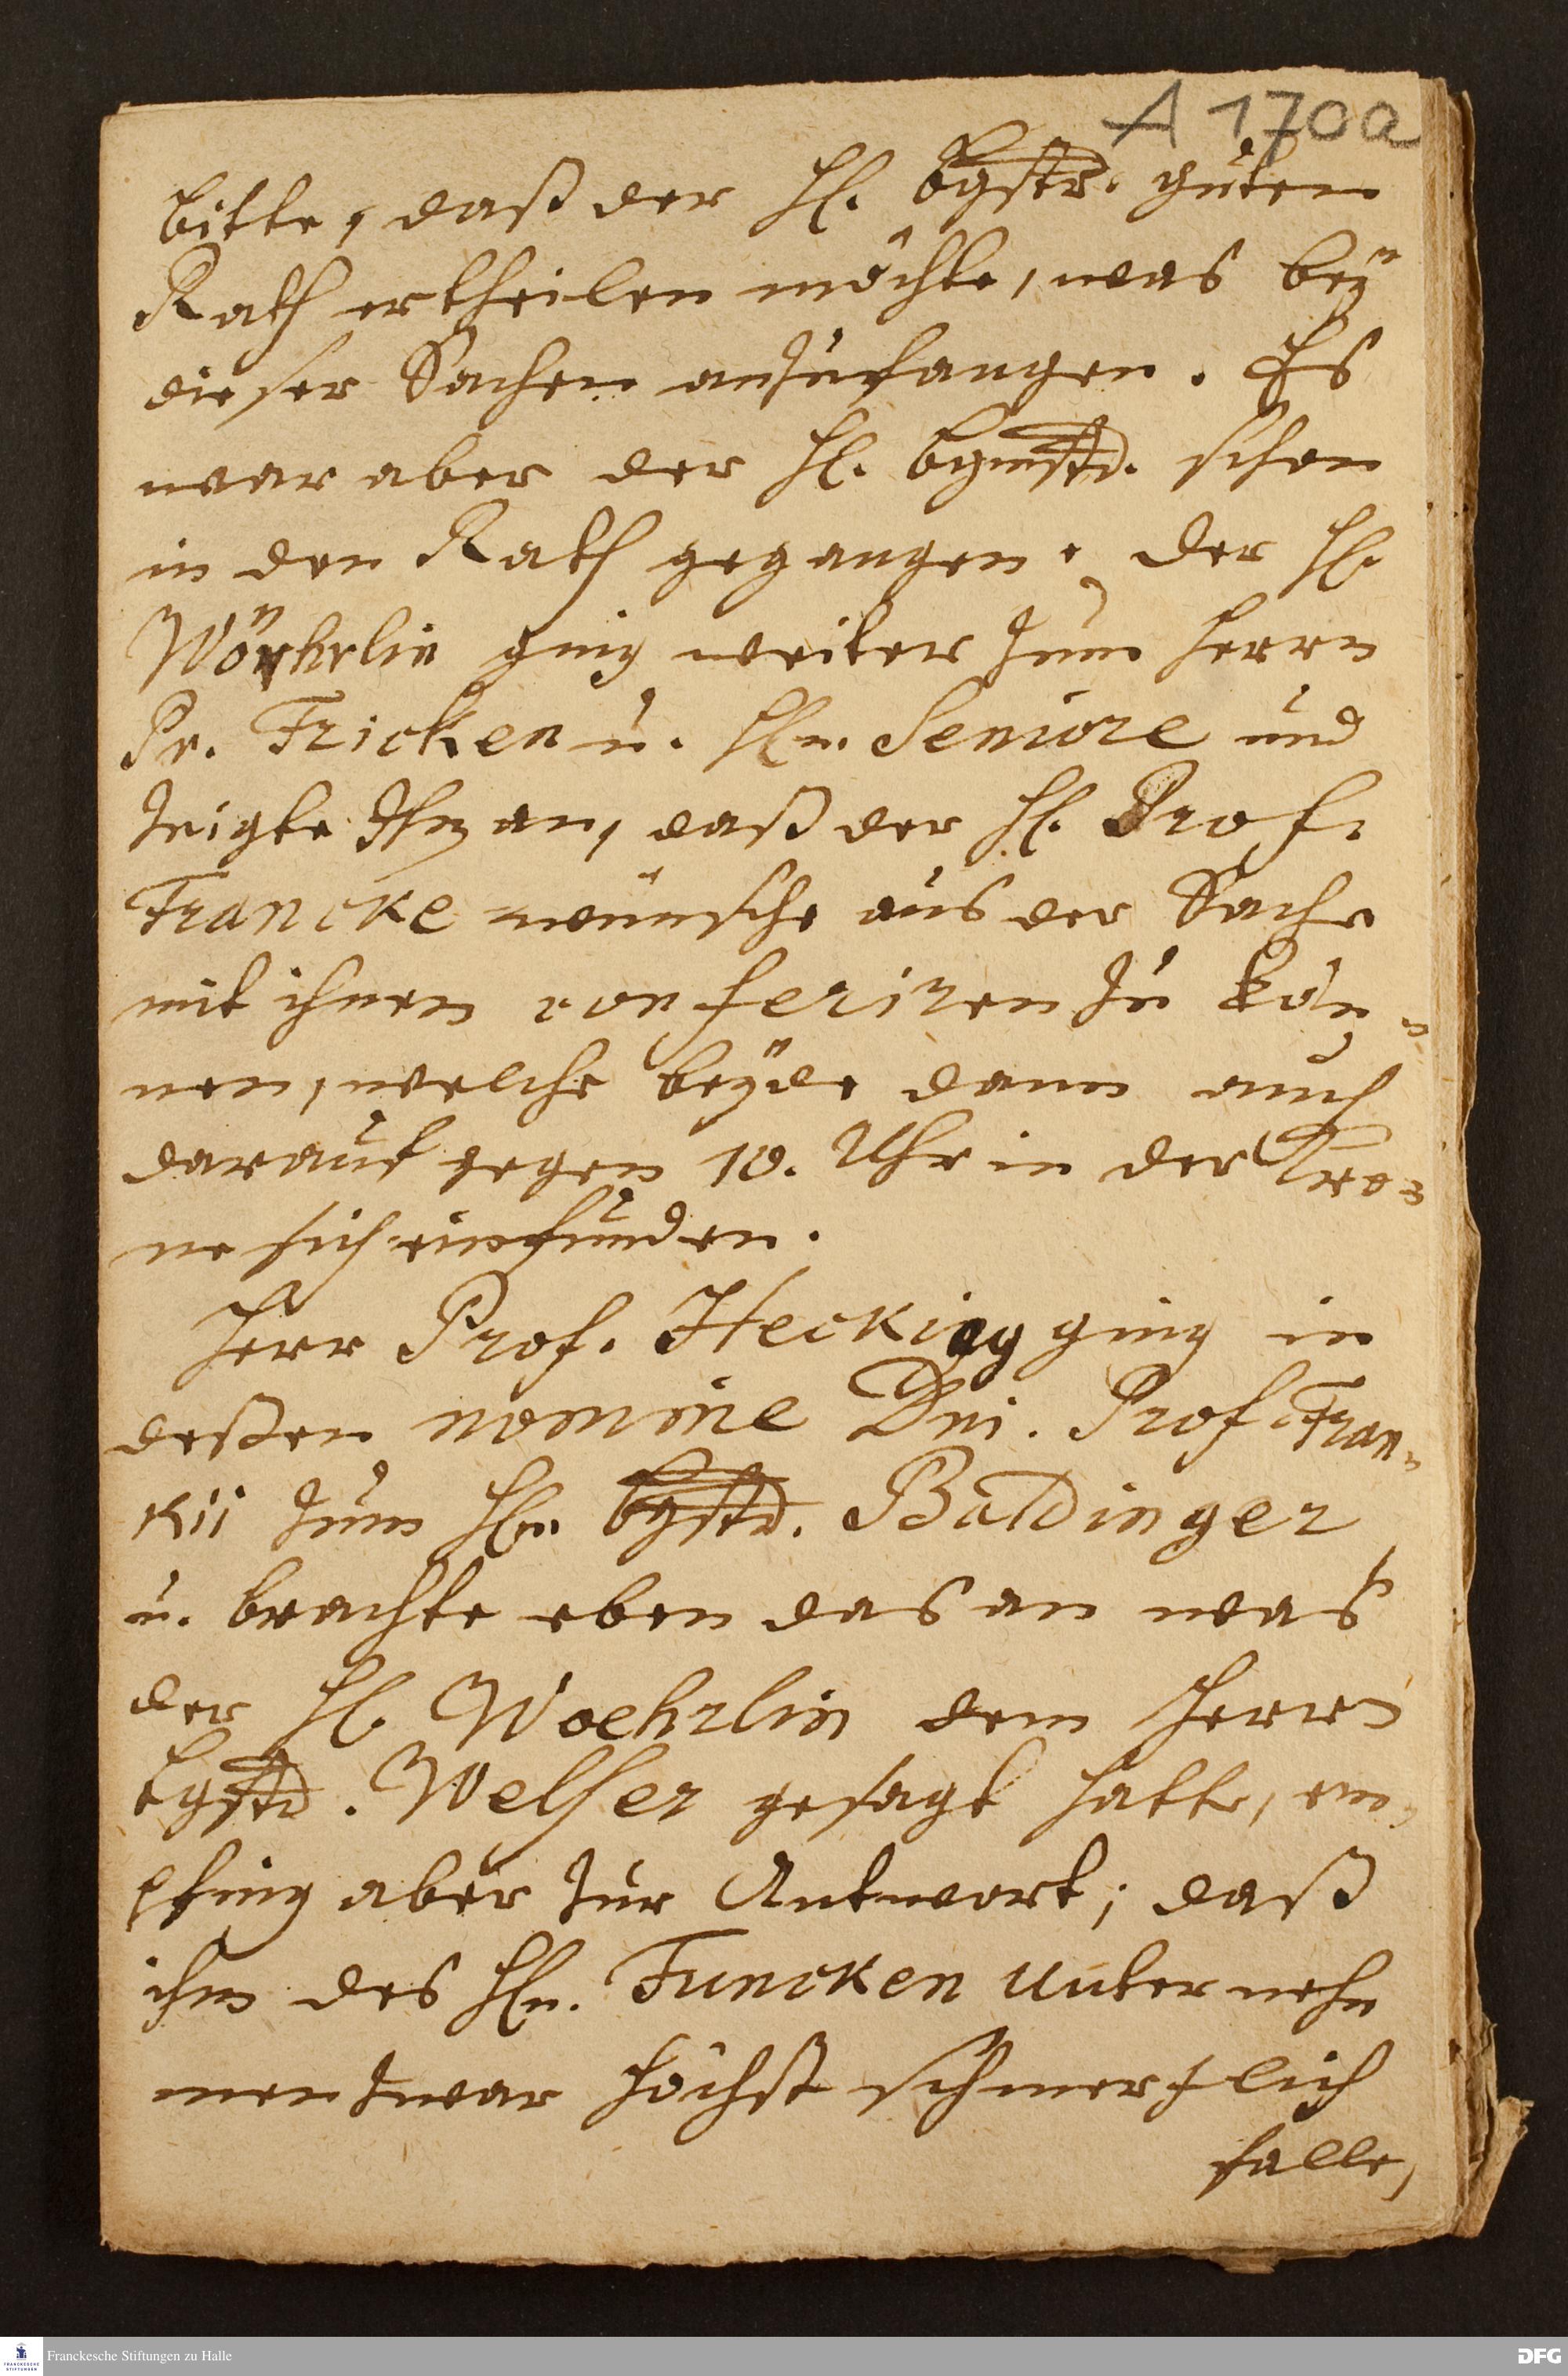 A 170a
bitte, daß der H. bgstr. guten
Rath ertheilen möchte, was bey
dieser Sachen anzufangen. Es
war aber der H. bgmstr. schon
in den Rath gegangen. der H.
Wöhrlin ging weiter zum Herrn
Pr. Fricken u. Hn. Seniore und
zeigte Ihn an, daß der H. Prof.
Francke wünsche aus der Sache
mit ihnen conferiren zu kön-
nen, welche beyde dann auch
darauf gegen 10. Uhr in der Cro-
ne sich einfunden.
Herr Prof. Hecking ging in
deßen nomine Dni. Prof. Fran-
kii zum Hn. bgstr. Baldinger
u. brachte eben das an was
der H. Woehrlin dem Herrn
bgstr. Welser gesagt hatte, em-
pfing aber zur Antwort; daß
ihm des Hn. Funcken Unterneh
men zwar höchst schmertzlich
falle,
Franckesche Stiftungen zu Halle
FRANCKESCHE STIFTUNGEN
DFG